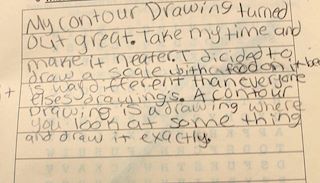 My contour Drawing turned
out great. Take my time and
make it neater. I dicided to
draw a scale with a food on it be
it is way different than everyone
elses drawing's. A contour
Drawing is a drawing where
you look at some thing
and draw it exactly.